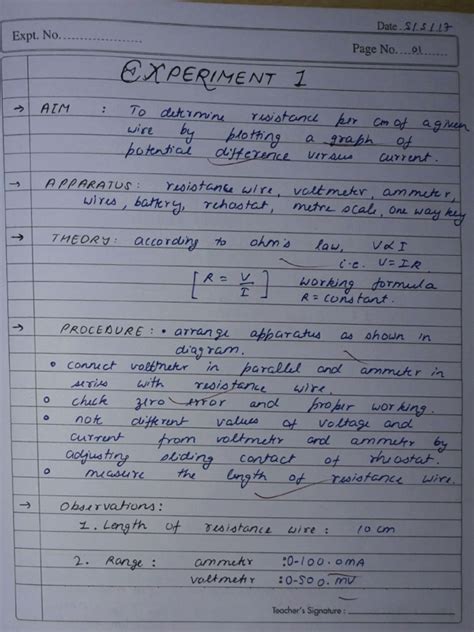 Date 5/5/17
Expt. No.
Page No. 01
EXPERIMENT 1
→ AIM : To determine resistance per cm of a given
wire by plotting a graph of
potential difference versus current.
→ APPARATUS: resistance wire, voltmeter, ammeter,
wires, battery, rehostat, metre scale, one way key
→ THEORY: according to ohm's law, V∝I
i.e. V=IR
[R = V/I] working formula
R = constant.
→ PROCEDURE: • arrange apparatus as shown in
diagram.
• connect voltmeter in parallel and ammeter in
series with resistance wire.
• check zero error and proper working.
• note different values of voltage and
current from voltmeter and ammeter by
adjusting sliding contact of rheostat.
• measure the length of resistance wire.
→ Observations:
1. Length of resistance wire : 10 cm
2. Range: ammeter :0-100.0mA
voltmeter :0-500.mV
Teacher's Signature :